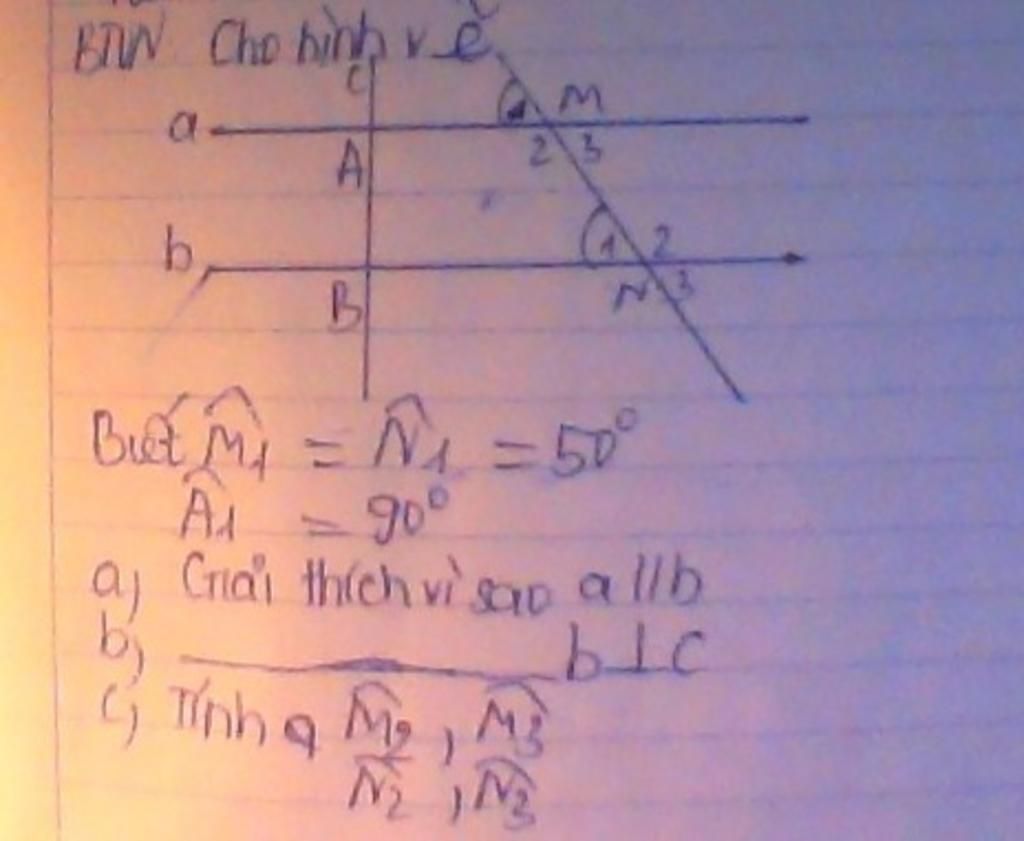 BTVN Cho hình vẽ
c
1 M
a
2 3
A
b 1 2
B N 3
Biết M̂1 = N̂1 = 50°
Â1 = 90°
a, Giải thích vì sao a // b
b, ______ b ⊥ c
c, Tính M̂2 , M̂3
N̂2 , N̂3